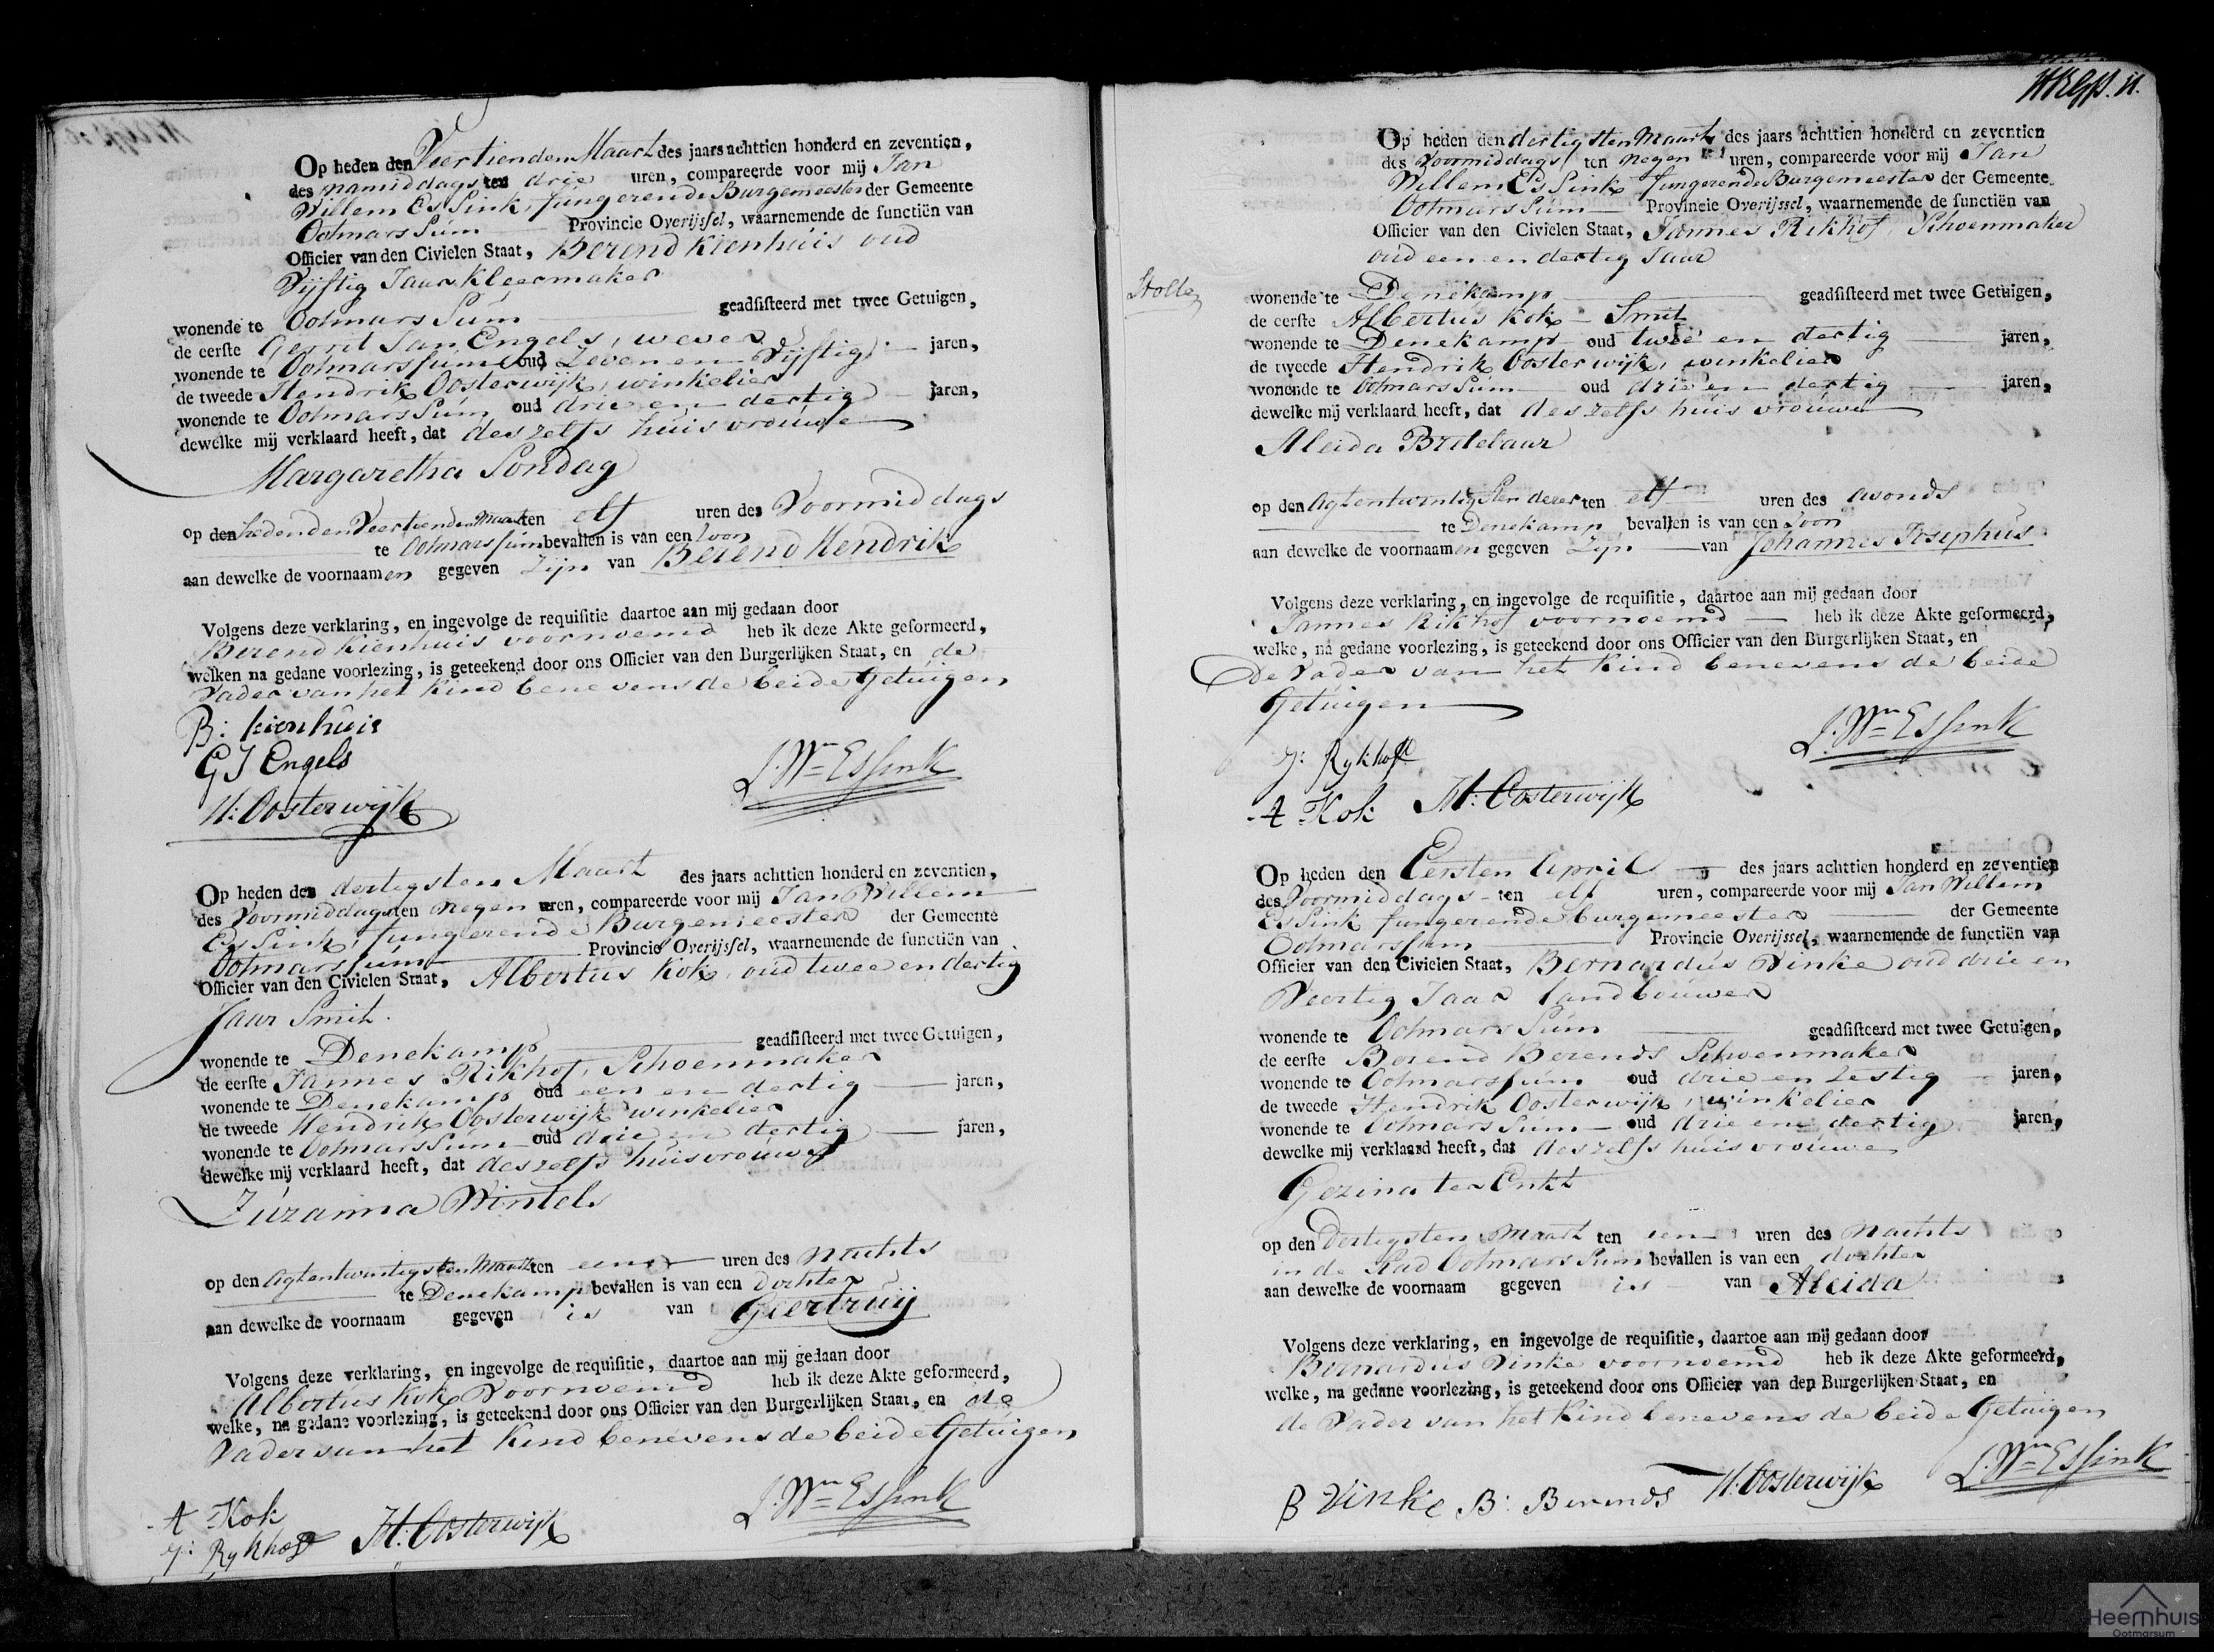 Op heden den Veertienden Maart des jaars achttien honderd en zeventien,
des namiddags ten drie uren, compareerde voor mij Jan
Willem Essink, fungerende Burgemeester der Gemeente
Ootmarssum Provincie Overijssel, waarnemende de functiën van
Officier van den Civielen Staat, Berend Kienhuis oud
Vijftig Jaar Kleermaker
wonende te Ootmarssum geadsisteerd met twee Getuigen,
de eerste Gerrit Jan Engels, wever
wonende te Ootmarssum oud Zeven en Vijftig jaren,
de tweede Hendrik Oosterwijk, winkelier
wonende te Ootmarssum oud drie en dertig jaren,
dewelke mij verklaard heeft, dat deszelfs huisvrouwe
Margaretha Sondag
op den heden den Veertienden Maart ten elf uren des Voormiddags
te Ootmarssum bevallen is van een Zoon
aan dewelke de voornaamen gegeven Zijn van Berend Hendrik
Volgens deze verklaring, en ingevolge de requisitie daartoe aan mij gedaan door
Berend Kienhuis voornoemd heb ik deze Akte geformeerd,
welken na gedane voorlezing, is geteekend door ons Officier van den Burgerlijken Staat, en de
Vader van het Kind benevens de beide Getuigen
B: kienhuis
G J Engels
J. Wm Essink
H: Oosterwijk
Op heden den dertigsten Maart des jaars achttien honderd en zeventien,
des Voormiddags ten negen uren, compareerde voor mij Jan Willem
Essink, fungerende Burgemeester der Gemeente
Ootmarssum Provincie Overijssel, waarnemende de functiën van
Officier van den Civielen Staat, Albertus Kok, oud twee en dertig
Jaar Smit.
wonende te Denekamp geadsisteerd met twee Getuigen,
de eerste Jannes Rikhof, Schoenmaker
wonende te Denekamp oud een en dertig jaren,
de tweede Hendrik Oosterwijk winkelier
wonende te Ootmarssum oud drie en dertig jaren,
dewelke mij verklaard heeft, dat deszelfs huisvrouwe
Zuzanna Wintels
op den Agtentwintigsten Maart ten een uren des nachts
te Denekamp bevallen is van een dochter
aan dewelke de voornaam gegeven is van Geertruij
Volgens deze verklaring, en ingevolge de requisitie, daartoe aan mij gedaan door
Albertus Kok Voornoemd heb ik deze Akte geformeerd,
welke, na gedane voorlezing, is geteekend door ons Officier van den Burgerlijken Staat, en de
Vader van het Kind benevens de beide Getuigen
J. Wm Essink
A Kok
J: Rykhof H: Oosterwijk
Op heden den dertigsten Maart des jaars achttien honderd en zeventien
des Voormiddags ten negen uren, compareerde voor mij Jan
Willem Essink fungerende Burgemeester der Gemeente
Ootmarssum Provincie Overijssel, waarnemende de functiën van
Officier van den Civielen Staat, Jannes Rikhof, Schoenmaker
oud een en dertig Jaar
wonende te Denekamp geadsisteerd met twee Getuigen,
de eerste Albertus Kok Smit
wonende te Denekamp oud twee en dertig jaren,
de tweede Hendrik Oosterwijk, winkelier
wonende te Ootmarssum oud drie en dertig jaren,
dewelke mij verklaard heeft, dat deszelfs huisvrouwe
Aleida Bretelaar
op den Agtentwintigsten dezer ten elf uren des avonds
te Denekamp bevallen is van een Zoon
aan dewelke de voornaamen gegeven Zijn van Johannes Josephus
Volgens deze verklaring, en ingevolge de requisitie, daartoe aan mij gedaan door
Jannes Rikhof voornoemd heb ik deze Akte geformeerd,
welke, na gedane voorlezing, is geteekend door ons Officier van den Burgerlijken Staat, en
de Vader van het Kind benevens de beide
Getuigen
J. Wm Essink
J: Rykhof
A Kok H: Oosterwijk
Op heden den Eersten April des jaars achttien honderd en zeventien
des Voormiddags ten elf uren, compareerde voor mij Jan Willem
Essink fungerende burgemeester der Gemeente
Ootmarssum Provincie Overijssel, waarnemende de functiën van
Officier van den Civielen Staat, Bernardus Vinke oud drie en
Veertig Jaar landbouwer
wonende te Ootmarssum geadsisteerd met twee Getuigen,
de eerste Berend Berends Schoenmaker
wonende te Ootmarssum oud drie en zestig jaren,
de tweede Hendrik Oosterwijk, winkelier
wonende te Ootmarssum oud drie en dertig jaren,
dewelke mij verklaard heeft, dat deszelfs huisvrouwe
Gezina ter Enkt
op den Dertigsten Maart ten een uren des Nachts
in de Stad Ootmarssum bevallen is van een dochter
aan dewelke de voornaam gegeven is van Aleida
Volgens deze verklaring, en ingevolge de requisitie, daartoe aan mij gedaan door
Bernardus Vinke voornoemd heb ik deze Akte geformeerd,
welke, na gedane voorlezing, is geteekend door ons Officier van den Burgerlijken Staat, en
de Vader van het Kind benevens de beide Getuigen
J. Wm Essink
B Vinke B: Berends H: Oosterwijk
Heemhuis
Ootmarsum